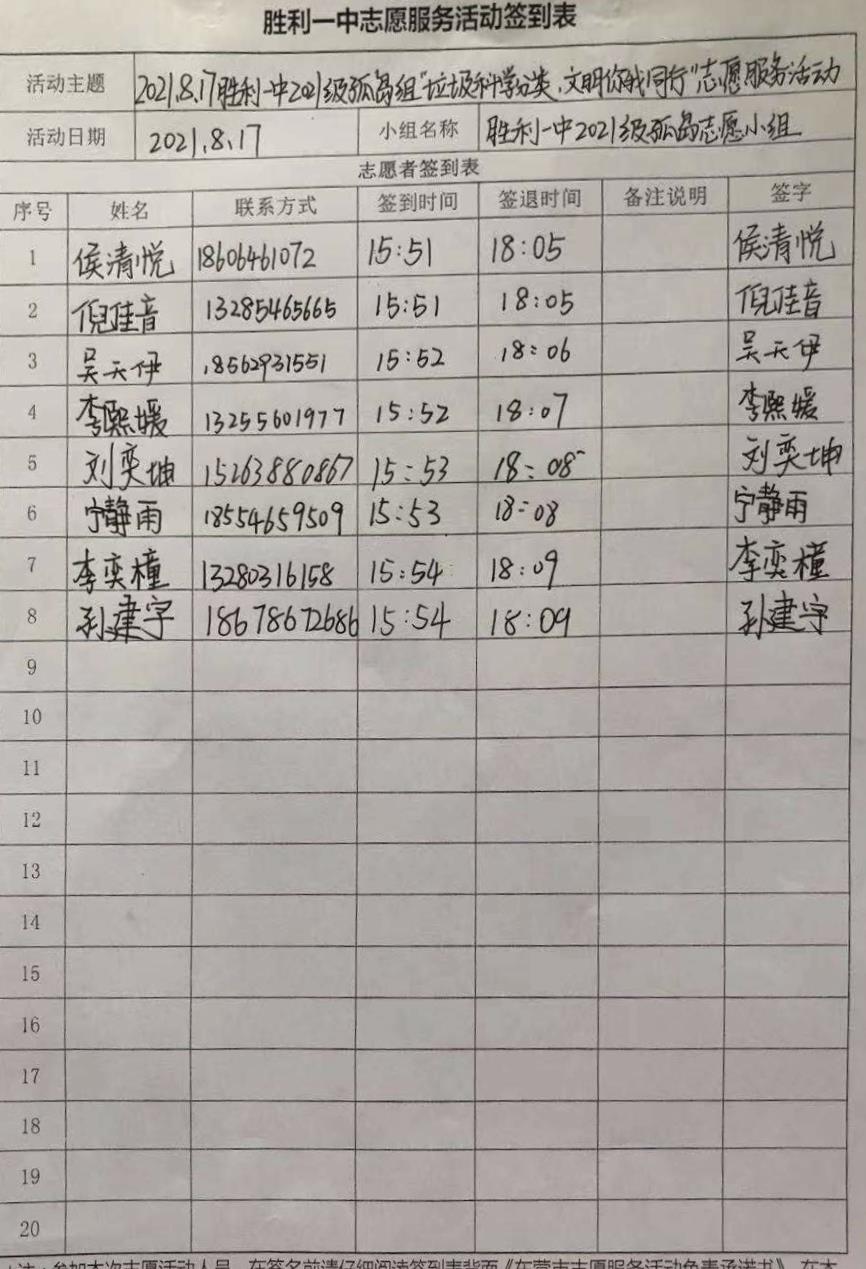 胜利一中志愿服务活动签到表
活动主题 2021.8.17胜利一中2021级孤岛组"垃圾科学分类、文明你我同行"志愿服务活动
活动日期 2021.8.17 小组名称 胜利一中2021级孤岛志愿小组
志愿者签到表
序号 姓名 联系方式 签到时间 签退时间 备注说明 签字
1 侯清悦 18606461072 15:51 18:05 侯清悦
2 倪佳音 13285465665 15:51 18:05 倪佳音
3 吴天伊 18562931551 15:52 18:06 吴天伊
4 李熙媛 13255601977 15:52 18:07 李熙媛
5 刘奕坤 15263880867 15:53 18:08 刘奕坤
6 宁静雨 18554659509 15:53 18:08 宁静雨
7 李奕橦 13280316158 15:54 18:09 李奕橦
8 孙建宇 18678672686 15:54 18:09 孙建宇
9
10
11
12
13
14
15
16
17
18
19
20
注：参加本次志愿活动人员，在签名前请仔细阅读签到表背面《东营市志愿服务活动免责承诺书》，在本